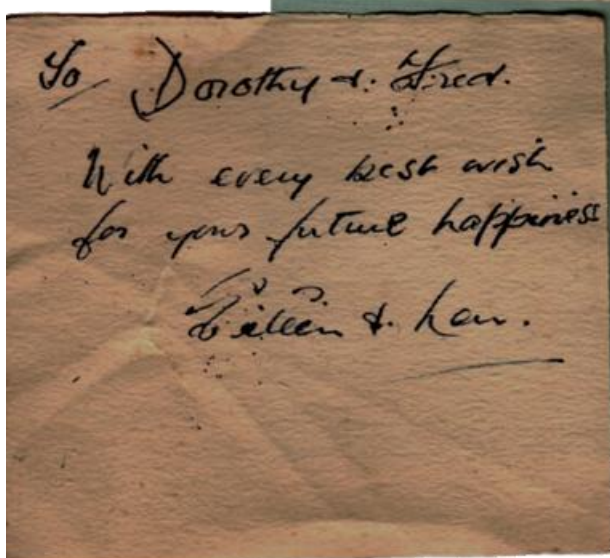 To Dorothy & Fred.
With every best wish
for your future happiness
Eileen &